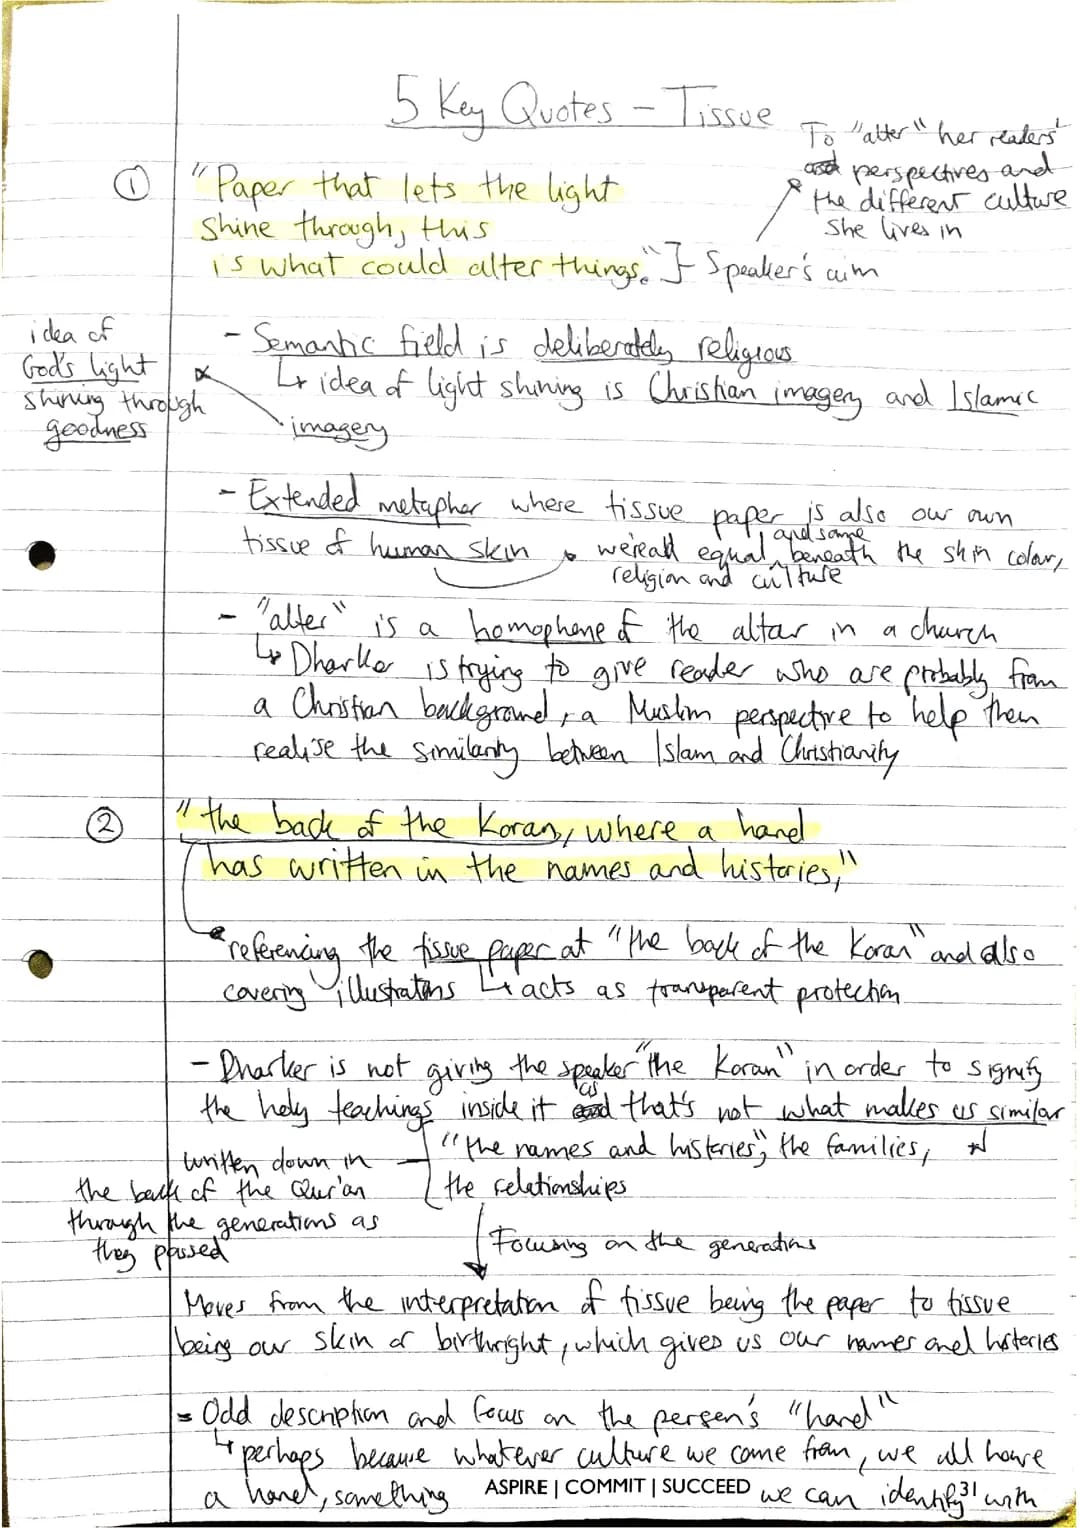 5 Key Quotes - Tissue
To "alter" her readers'
perspectives and
the different culture
she lives in
① "Paper that lets the light
shine through, this
is what could alter things." } Speaker's aim
- Semantic field is deliberately religious
↳ idea of light shining is Christian imagery and Islamic
imagery
idea of
God's light
shining through
goodness
- Extended metaphor where tissue paper is also our own
tissue of human skin → we're all equal and same beneath the skin colour,
religion and culture
- "alter" is a homophone of the altar in a church
↳ Dharker is trying to give reader who are probably from
a Christian background, a Muslim perspective to help them
realise the similarity between Islam and Christianity
② "the back of the Koran, where a hand
has written in the names and histories,"
referencing the tissue paper at "the back of the Koran" and also
covering illustrations ↳ acts as transparent protection
- Dharker is not giving the speaker "the Koran" in order to signify
the holy teachings inside it as that's not what makes us similar
"the names and histories", the families,
the relationships
written down in
the back of the Qur'an
through the generations as
they passed
Focusing on the generations
Moves from the interpretation of tissue being the paper to tissue
being our skin or birthright, which gives us our names and histories
- Odd description and focus on the person's "hand"
↳ perhaps because whatever culture we come from, we all have
a hand, something we can identify with
ASPIRE | COMMIT | SUCCEED
31